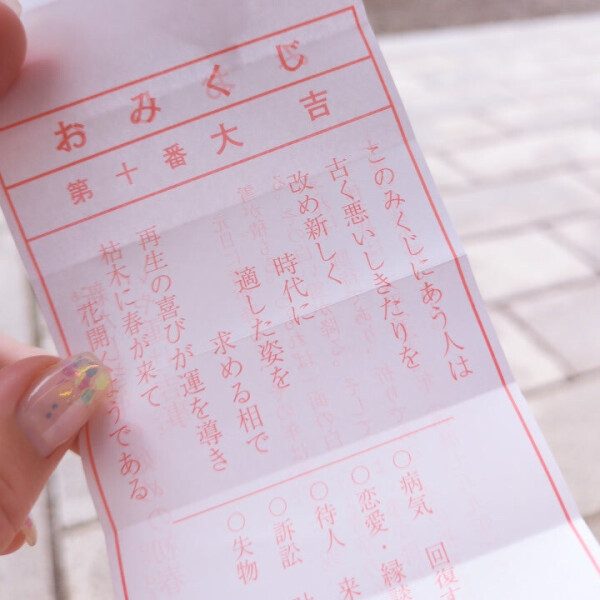 おみくじ
第十番大吉
このみくじにあう人は
古く悪いしきたりを
改め新しく
時代に
適した姿を
求める相で
再生の喜びが運を導き
枯木に春が来て
花開くようである
○病気 回復す
○恋愛・縁談
○待人 来
○訴訟
○失物